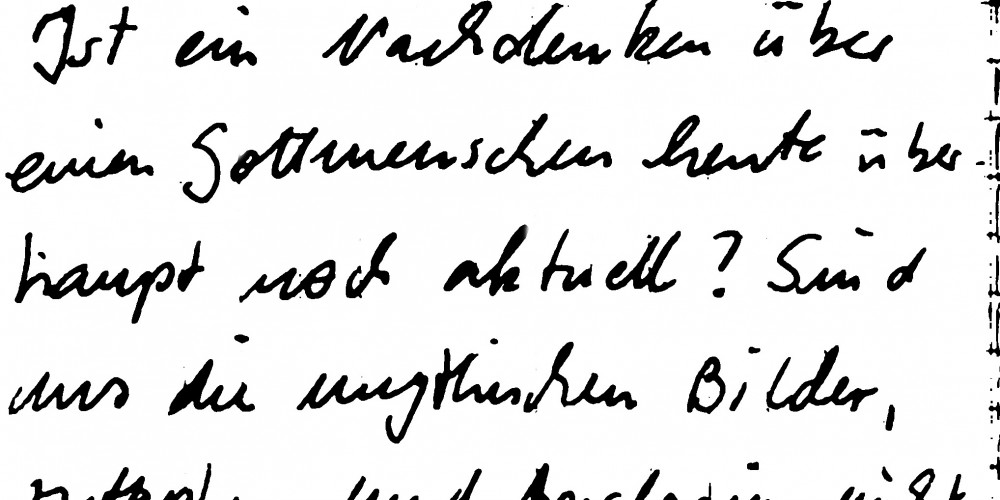 Ist ein Nachdenken über
einen Gottmenschen heute über-
haupt noch aktuell? Sind
uns die mythischen Bilder,
und nicht